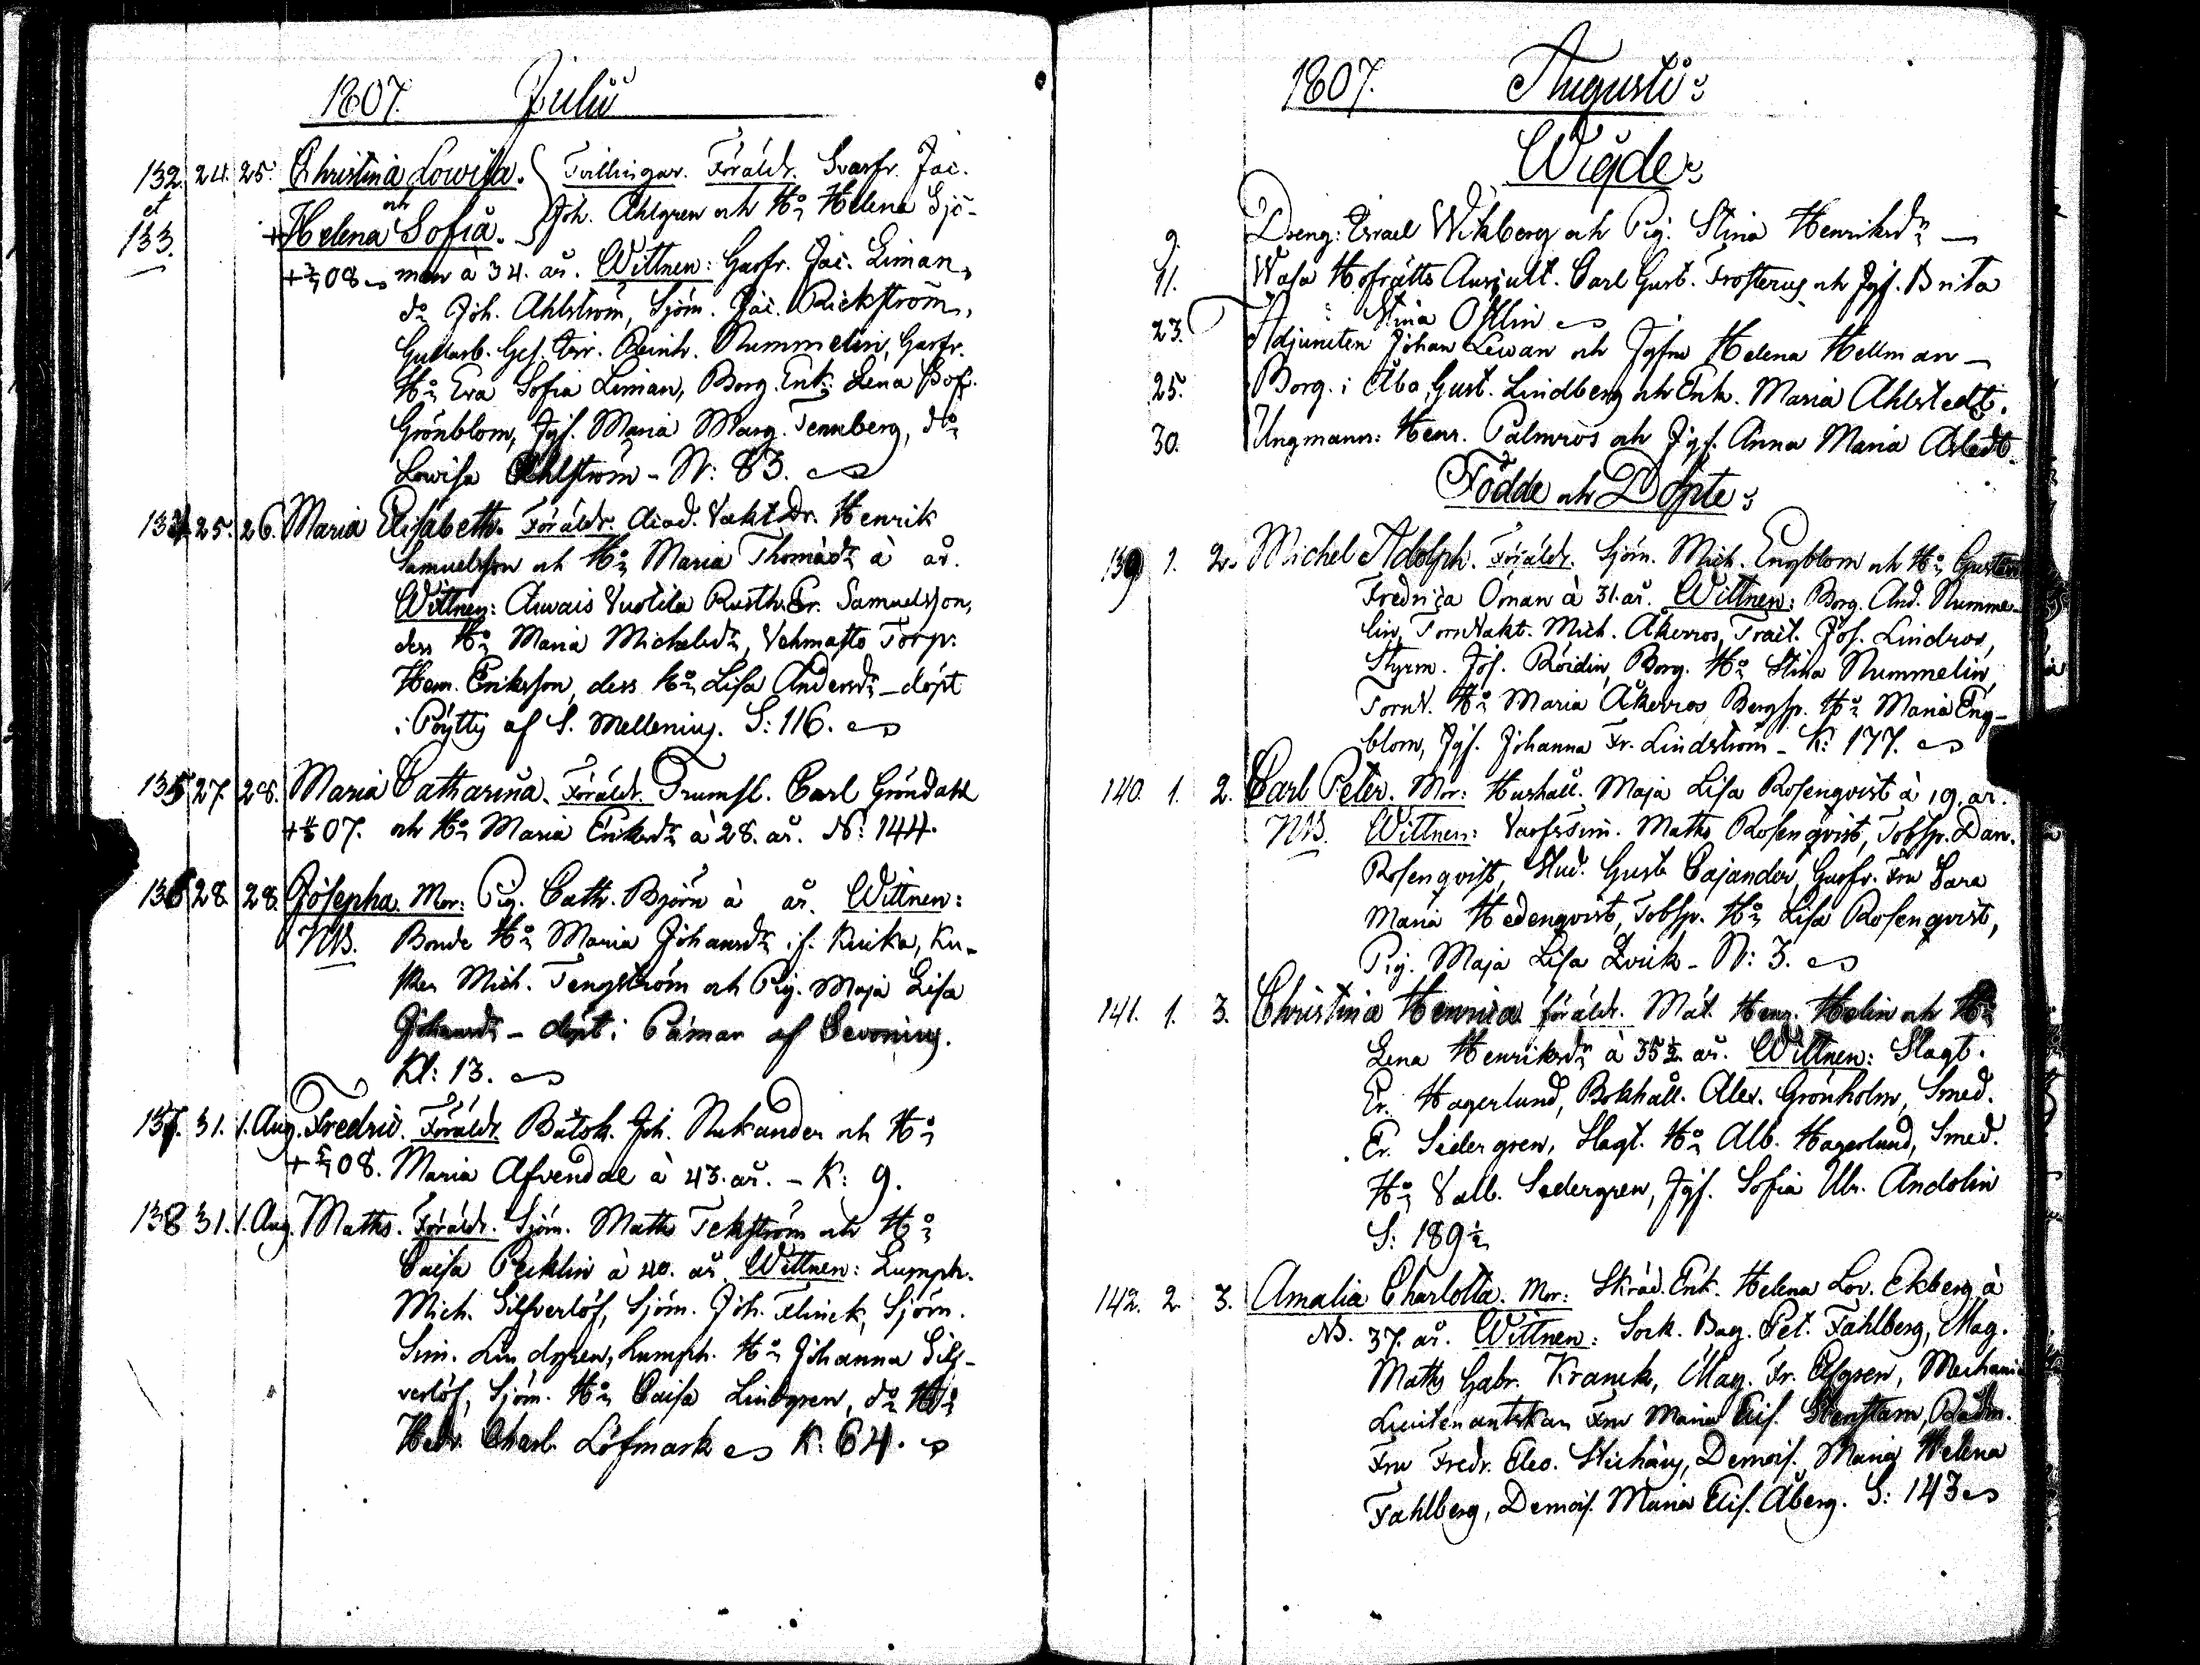 1807. Julii
132. 24. 25. Christina Lowisa. Tvillingar. Föräldr. Svarfr. Jac.
et och Joh. Ahlgren och Hu Helena Sjö-
133. + Helena Sofia.
+ 08 man à 34. år. Wittnen: Garfr. Jac. Liman,
do Joh. Ahlström, Sjöm. Jac. Rickström,
Gullarb. Ges. Reinh. Nummelin, Garfr.
Hu Eva Sofia Liman, Borg. Enk: Lena
Grönblom, Jgf. Maria Marg. Tennberg, do
Lowisa Ahlström - N: 83.
134 25. 26. Maria Elisabeth. Föräldr. Acad. Vakt. Dr. Henrik
Samuelsson och Hu Maria Thomädr à år.
Wittnen: Auvais Vuotila Rusth. Er. Samuelsson,
dess Hu Maria Michelsdr, Vehmasto Torp.
Hem. Eriksson, dess Hu Lisa Andersdr - döpt
i Pöytty af S. Mellenius. S: 116.
135 27. 28. Maria Catharina. Föräldr. Trumsl. Carl Gröndahl
+ 07. och Hu Maria Eriksdr à 28. år. N: 144.
136 28 28. Josepha. Mor: Pig. Cath. Björn à år. Wittnen:
NB. Bonde Hu Maria Johansdr if. Kuika, Ku-
sken Mich. Tengström och Pig. Maja Lisa
Johansdr - döpt i Pämar af Sevonius.
Kl: 13.
137. 31. 1. Aug. Fredric. Föräldr. Båtsk. Joh. Nukander och Hu
+ 08. Maria Afvendal à 43. år. - K: 9.
138 31. 1. Aug. Maths. Föräldr. Sjöm. Maths Tekström och Hu
Caisa Pecklin à 40. år. Wittnen: Lumph.
Mich. Silfverlöf, Sjöm. Joh. Flinck, Sjöm.
Sim. Lindgren, Lumph. Hu Johanna Silf-
verlöf, Sjöm. Hu Caisa Lindgren, do Hu
Hedv. Charl. Löfmark K: 64.
1807. Augusti
Wigde
9. Dreng: Israel Wikberg och Pig. Stina Henriksdr -
11. Wasa Hofrätts Auscult. Carl Gust. Frosterus och Jgf. Brita
Stina Ofllin
23. Adjuncten Johan Lewan och Jgfru Helena Hellman -
25. Borg. i Åbo, Gust. Lindberg och Enk. Maria Ahlstedt.
30. Ungmann: Henr. Palmros och Jgf. Anna Maria
Födde och Döpte
139 1. 2. Michel Adolph. Föräldr. Sjöm. Mich. Engblom och Hu
Fredrica Öman à 31. år. Wittnen: Borg. And. Numme-
lin, TornVakt. Mich. Åkerros, Trait. Jos. Lindros,
Styrm. Jos. Roidin, Borg. Hu Stina Nummelin,
TornV. Hu Maria Åkerros, Bergsp. Hu Maria Eng-
blom, Jgf. Johanna Fr. Lindström - K: 177.
140. 1. 2. Carl Peter. Mor: Hushåll. Maja Lisa Rosenqvist à 19. år.
NB. Wittnen: Varfstim. Maths Rosenqvist, Tobsp. Dan.
Rosenqvist, Stud. Gust. Cajander, Garfr. Fru Sara
Maria Hedenqvist, Tobsp. Hu Lisa Rosenqvist,
Pig. Maja Lisa Zvick - N: 3.
141. 1. 3. Christina Henrica. föräldr. Mål. Henr. Helin och Hu
Lena Henriksdr à 35½ år. Wittnen: Slagt.
Er. Hagerlund, Bokhåll. Alex. Grönholm, Smed.
Er. Sedergren, Slagt. Hu Alb. Hagerlund, Smed.
Hu Valb. Sedergren, Jgf. Sofia Ulr. Andolin
S: 189½
142. 2. 3. Amalia Charlotta. Mor: Skräd. Enk. Helena Lov. Ekberg à
NB. 37. år. Wittnen: Sock. Bag. Pet. Fahlberg, Mag.
Maths Gabr. Kranck, Mag. Fr. Elfgren, Mechani
Lieutenantskan Fru Maria Elis. Stenstam, Rådm.
Fru Fredr. Eleo. Stichäus, Demois. Maria Helena
Fahlberg, Demois. Maria Elis. Åberg. S: 143